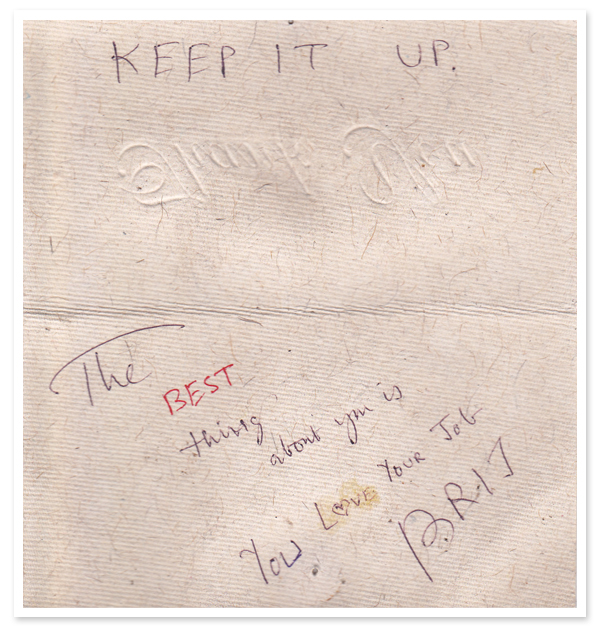 KEEP IT UP.
Thank You
The BEST
thing about you is
You LOVE YOUR JOB
BRIJ